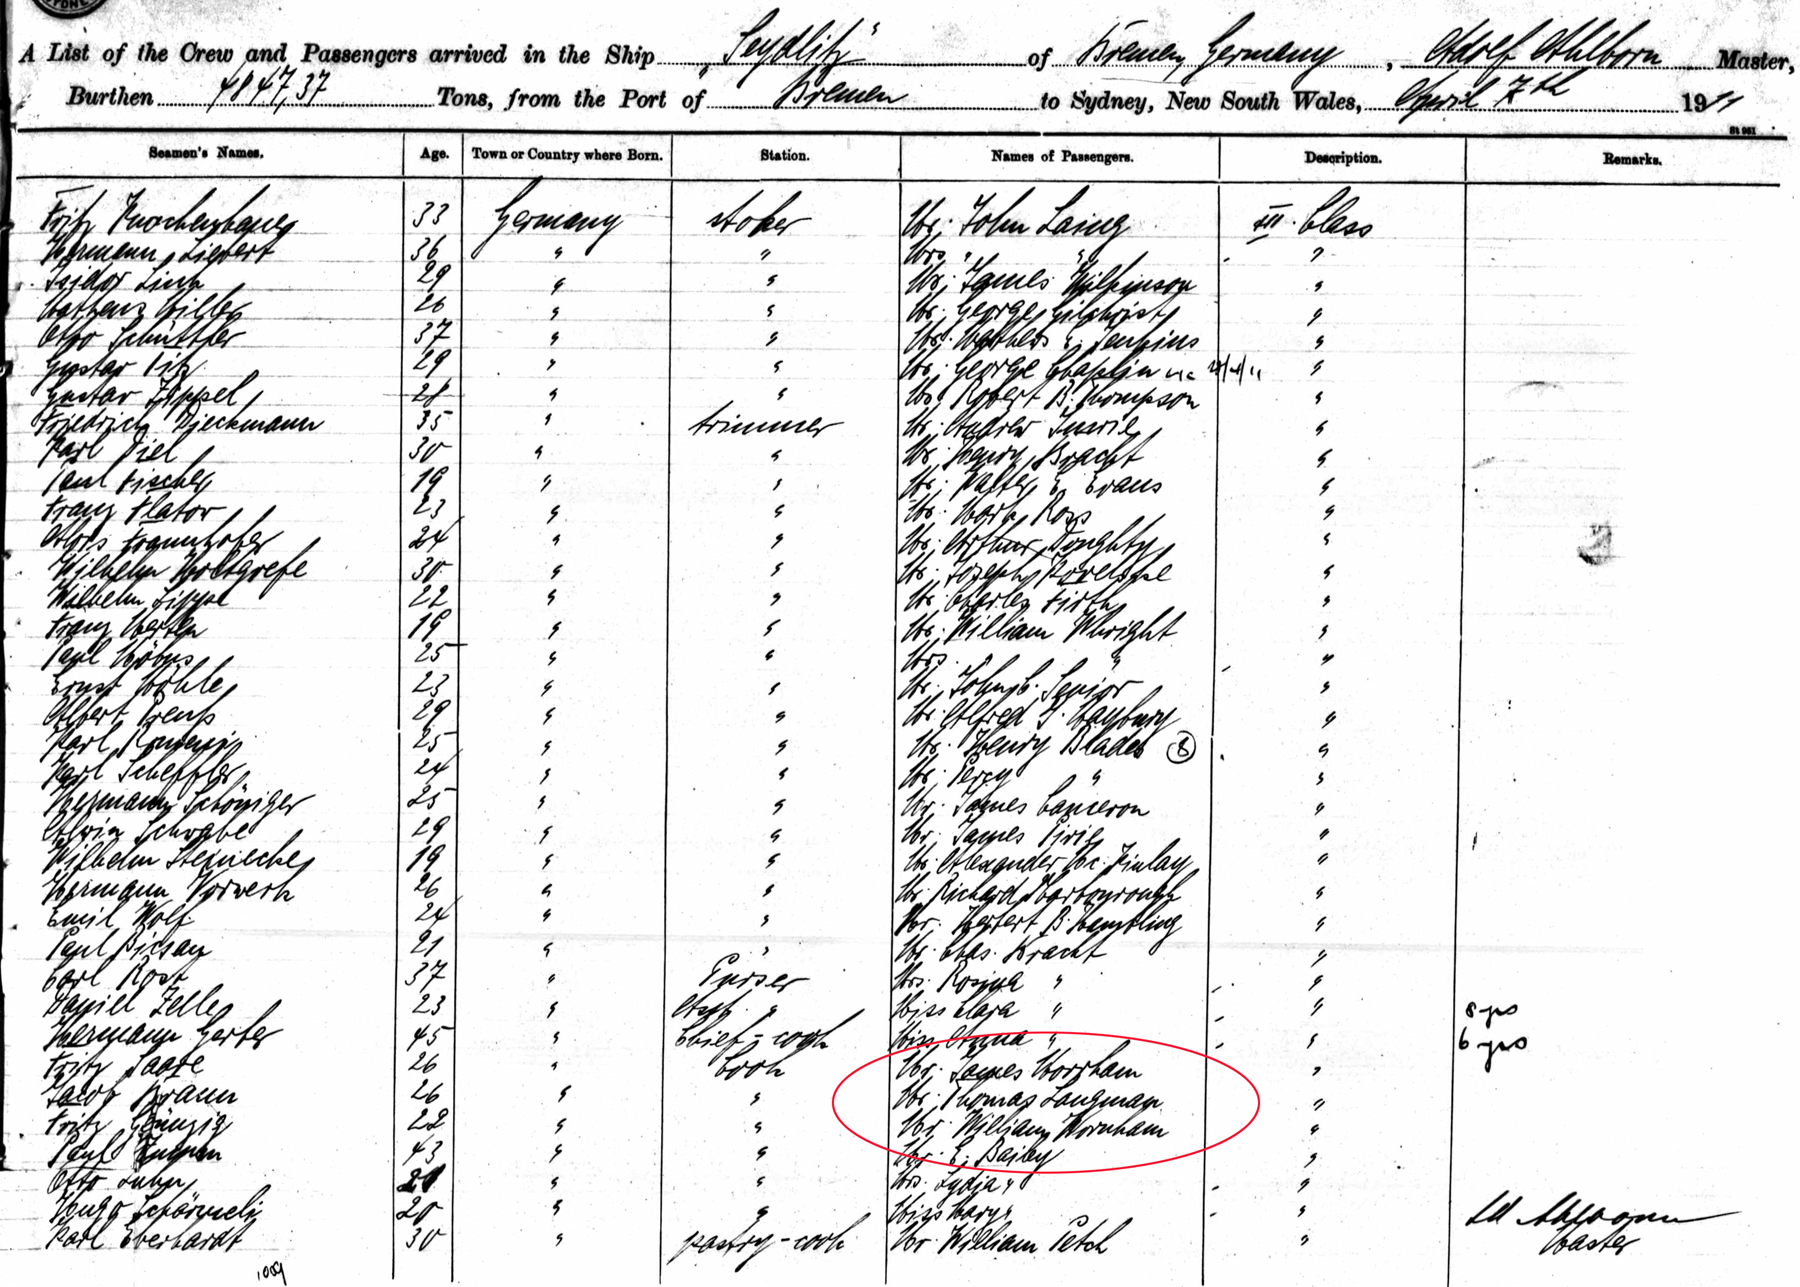 A List of the Crew and Passengers arrived in the Ship "Seydlitz" of Bremen, Germany, Adolf Ahlborn Master,
Burthen 4847,37 Tons, from the Port of Bremen to Sydney, New South Wales, April 7th 1911
St 951
Seamen's Names. Age. Town or Country where Born. Station. Names of Passengers. Description. Remarks.
Fritz 33 Germany stoker Mr. John Laing III. Class
Hermann Siewert 36 " " Mrs " " "
Isidor Linn 29 " " Mr. James Wilkinson "
26 " " Mr. George Gilchrist "
Otto 37 " " Mr. Jenkins "
Gustav 29 " " Mr. George Chaplin "
Gustav Zippel 28 " " Mr. Robert B. Thompson "
Friedrich Dieckmann 35 " trimmer Mr. Andrew "
Karl Piel 30 " " Mr. Henry Bracht "
Paul Fischer 19 " " Mr. Walter E. Evans "
Franz Flatow 23 " " Mr. Mark Ross "
Alois 24 " " Mr. Arthur Doughty "
Wilhelm Holtgrefe 30 " " Mr. Joseph "
Wilhelm Lippe 22 " " Mr. Charles Firth "
Franz 19 " " Mr. William Whright "
Paul 25 " " Mrs. " " "
Ernst 23 " " Mr. John C. Senior "
Albert Preuß 29 " " Mr. Alfred "
Karl 25 " " Mr. Henry Blades (8) "
Karl Scheffler 24 " " Mr. Percy " "
Hermann Schöniger 25 " " Mr. James Cameron "
Alwin Schwabe 29 " " Mr. James Pirie "
Wilhelm Steinecke 19 " " Mr. Alexander Mc. Finlay "
Hermann Vorwerk 26 " " Mr. Richard "
Emil Wolf 24 " " Mr. Herbert B. "
Paul 21 " " Mr. Chas. Kracht "
Carl Rost 37 " Purser Mrs. Rosina " "
Daniel Zelle 23 " Asst. " Miss Clara " " 8 yrs
Hermann Gerber 45 " Chief-cook Miss Anna " " 6 yrs
Fritz Saare 26 " Cook Mr. James Worrham "
Jacob Braun 26 " " Mr. Thomas Langman "
Fritz 22 " " Mr. William Wornham "
Paul 43 " " Mr. E. Bailey "
Otto Luhn 21 " " Mrs. Lydia " "
Hugo 20 " " Miss Mary " "
Karl Eberhardt 30 " pastry-cook Mr. William Petch "
Ad Ahlborn
Master
1059